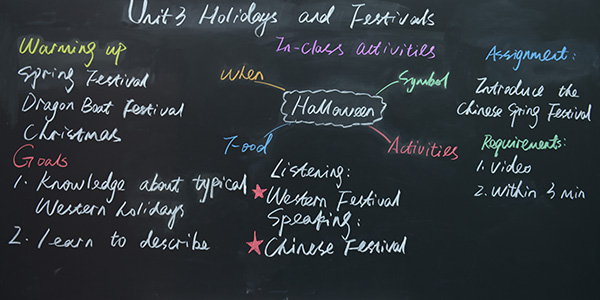 Unit 3 Holidays and Festivals
Warming up
Spring Festival
Dragon Boat Festival
Christmas
Goals
1. Knowledge about typical
Western holidays
2. learn to describe
In-class activities
When
Symbol
Halloween
Food
Activities
Listening:
★ Western Festival
Speaking:
★ Chinese Festival
Assignment:
Introduce the
Chinese Spring Festival
Requirements:
1. video
2. within 3 min